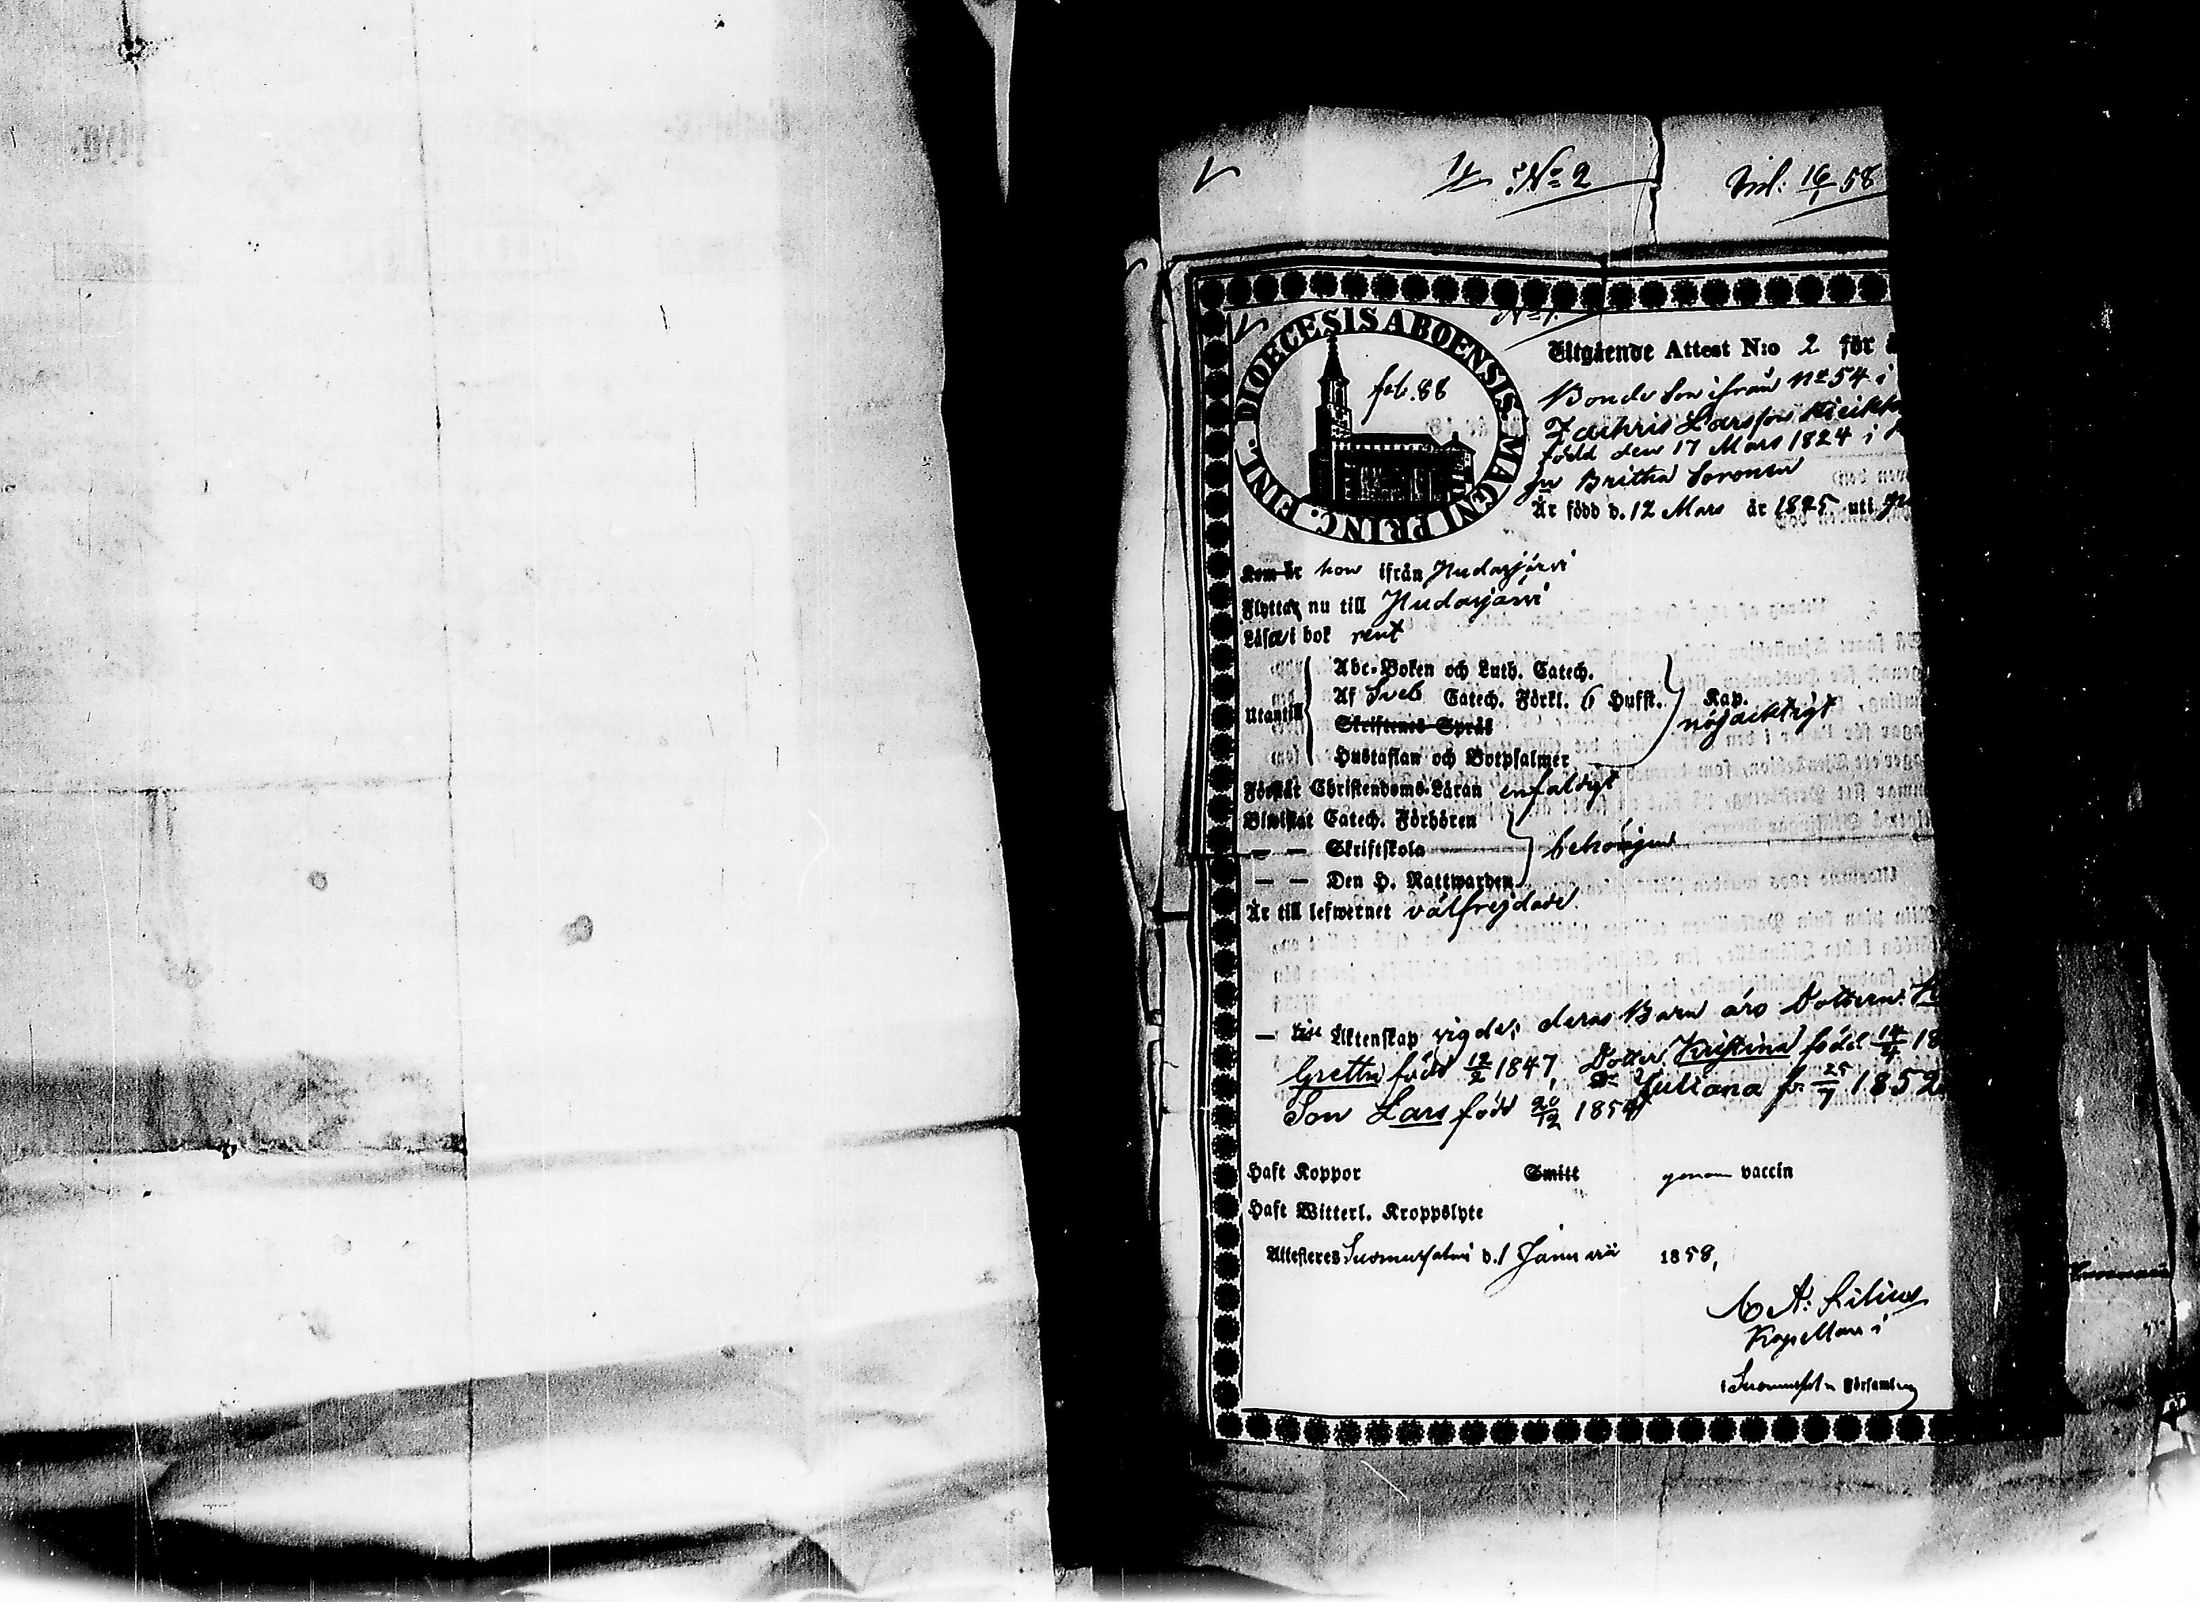 No 2 Inl: 16/1 58
No 1.
DIOECESIS ABOENSIS MAGNI PRINC. FINL.
fol. 88
Utgående Attest N:o 2 för
Bonde Son ifrån No 54 i
Zachris Larsson
född den 17 Mars 1824 i
Britha Soronen
Är född d. 12 Mars år 1825 uti
Kom år hon ifrån Hudasjärvi
Flyttar nu till Hudasjärvi
Läser i bok rent
Utantill
Abc-Boken och Luth. Catech.
Af Sveb Catech. Förkl. 6 Hufst. Kap.
Skriftenes Språk
nöjacktigt
Hustaflan och Botpsalmer
Förstår Christendoms-Läran enfaldigt
Biwistat Catech. Förhören
— — Skriftskola behörigen
— — Den H. Nattwarden
Är till lefwernet välfrejdade.
— Äktenskap vigde; deras Barn äro Dottern:
Gretha född 12/2 1847, Dotter Kristina född 14/4 18
Juliana f. 25/7 1852
Son Lars född 20/12 1854
Haft Koppor Smitt genom vaccin
Haft Witterl. Kroppslyte
Attesteras Suomusalmi d. 1 Januarii 1858,
A: Lilius
Kapellan i
i Suomusal n Församling